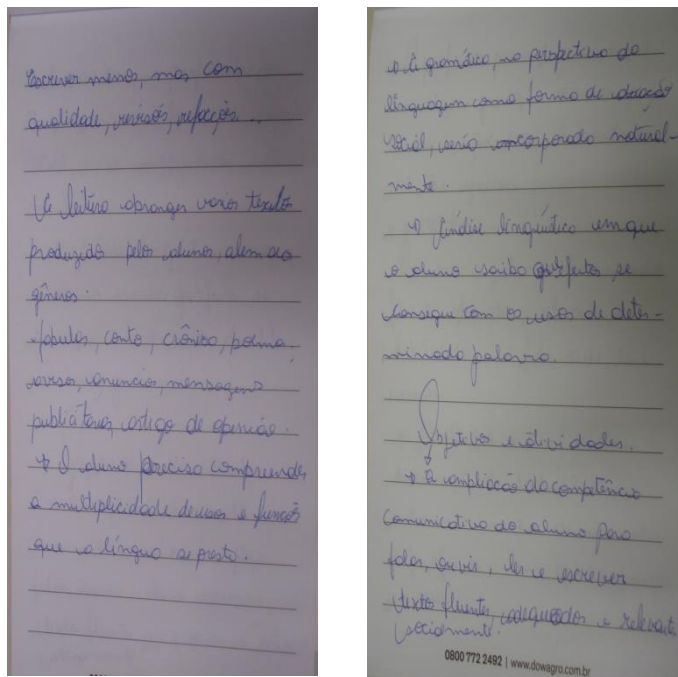 Escrever menos, mas com
qualidade, revisões, refacções...
A leitura abranger varios textos
produzidos pelos alunos, alem dos
gêneros.
fabulas, conto, crônica, poema,
avisos, anuncios, mensagens
publicitárias, artigo de opinião.
O aluno precisa compreender
a multiplicidade de usos e funções
que a língua se presta.
A gramática, na perspectiva da
linguagem como forma de atuação
social, seria incorporada natural-
mente.
Análise linguística em que
o aluno saiba que efeitos se
consegue com os usos de deter-
minada palavra.
Objetivos e atividades.
A ampliação da competência
comunicativa do aluno para
falar, ouvir, ler e escrever
textos fluentes, adequados e relevantes
socialmente.
0800 772 2492 | www.dowagro.com.br